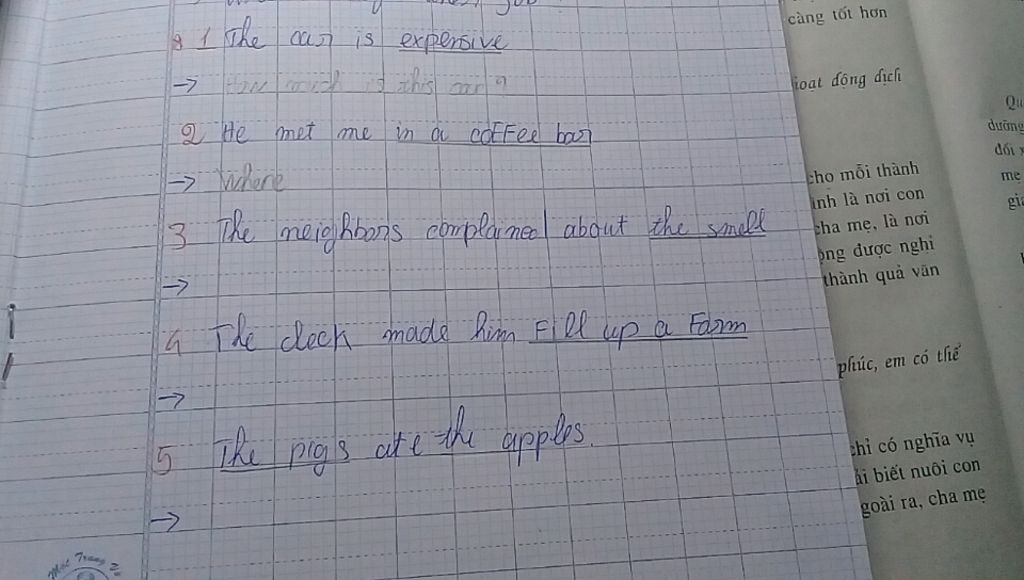 1 The car is expensive
→ How much is this car?
2 He met me in a coffee bar
→ Where
3 The neighbors complained about the smell
→
4 The cleck made him Fill up a Form
→
5 The pigs ate the apples.
→
càng tốt hơn
ioat động dịch
cho mỗi thành
ình là nơi con
cha mẹ, là nơi
ong được nghỉ
thành quả văn
phúc, em có thể
chỉ có nghĩa vụ
ải biết nuôi con
goài ra, cha mẹ
Qu
dưỡng
đối
mẹ